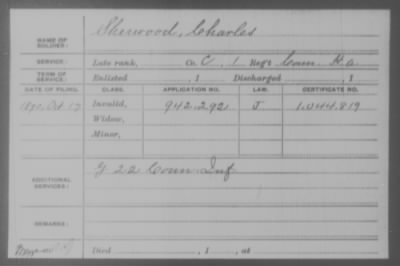 NAME OF SOLDIER: Sherwood, Charles
SERVICE: Late rank, Co. C, 1 Reg't Conn. H.A.
TERM OF SERVICE: Enlisted , 1 Discharged , 1
DATE OF FILING. CLASS. APPLICATION NO. LAW. CERTIFICATE NO.
1890, Oct 17 Invalid, 942,292 J 1,044,819
Widow,
Minor,
ADDITIONAL SERVICES: G 22 Conn Inf
REMARKS:
Died , 1 , at